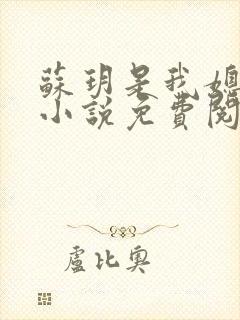 蘇玥是我媳
小說免費閱
盧比奧